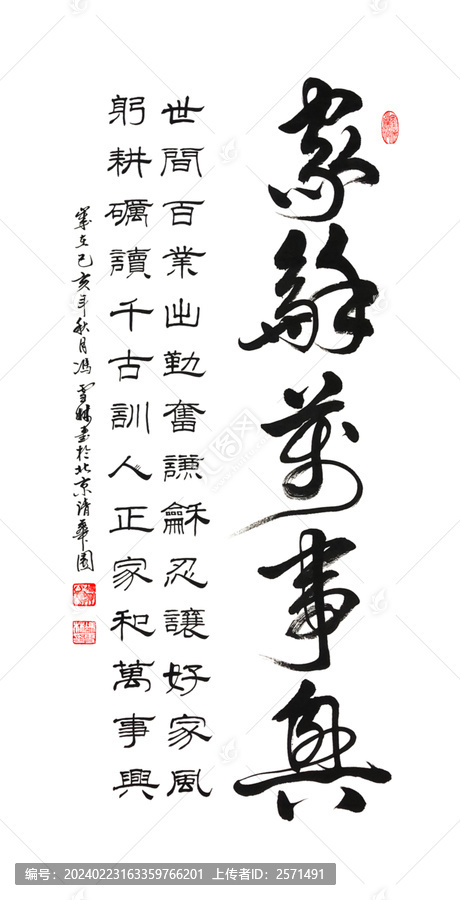 家龢萬事興
世間百業出勤奮謙龢忍讓好家風
躬耕礪讀千古訓人正家和萬事興
歲在己亥年秋月馮雪林書於北京清華園
编号：20240223163359766201 上传者ID：2571491